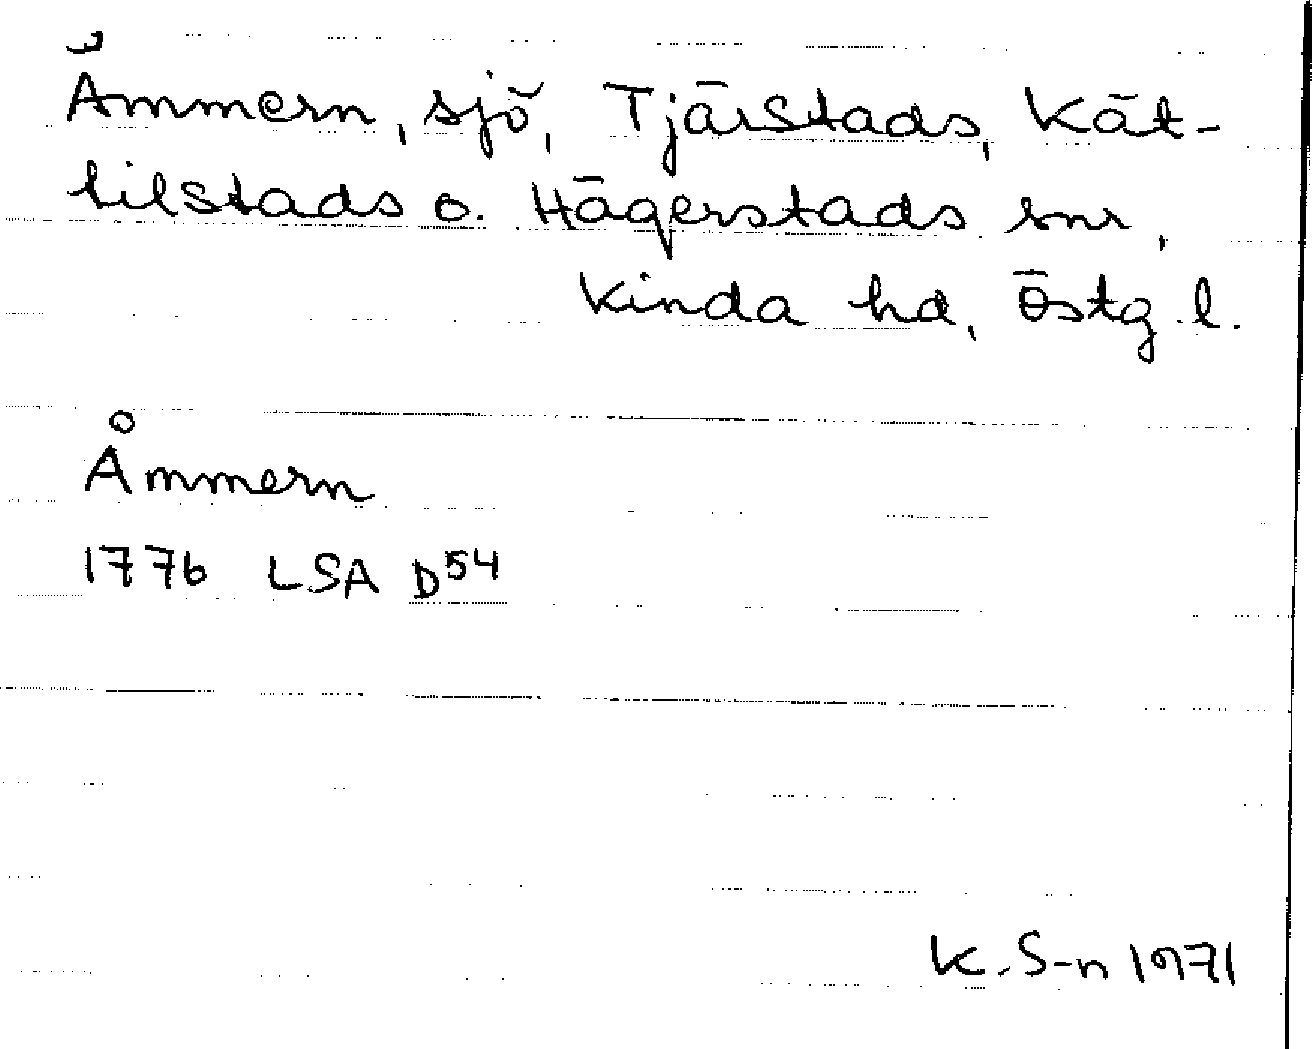 Ämmern, sjö, Tjärstads, Kät-
tilstads o. Hägerstads snr,
Kinda hd, Östg. l.
Åmmern
1776 LSA D54
K. S-n 1971